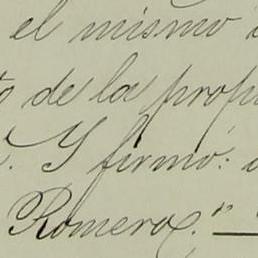 el mismo
de la prop
Y firmó:
Romero."